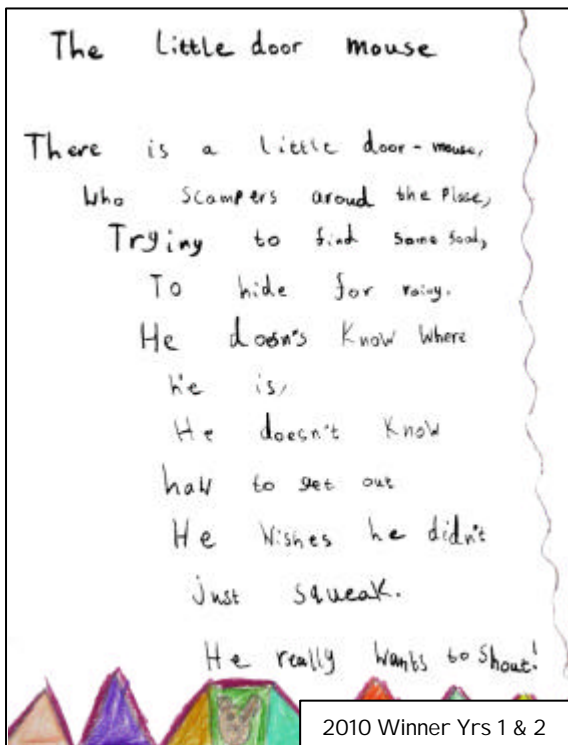 The little door mouse
There is a little door-mouse,
Who scampers aroud the place,
Trying to find some food,
To hide for rainy.
He doesn's know where
he is,
He doesn't know
how to get out
He wishes he didn't
just squeak.
He really wants to shout!
2010 Winner Yrs 1 & 2